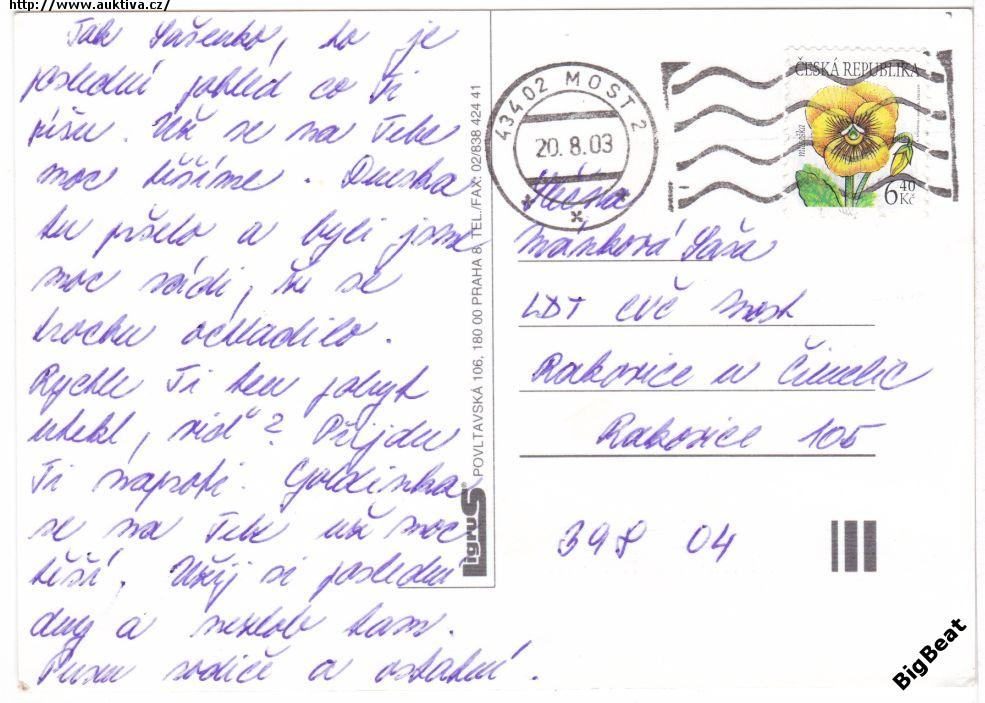 http://www.auktiva.cz/
Tak Sašenko, to je
poslední pohled co Ti
píšu. Už se na Tebe
moc těšíme. Dneska
tu pršelo a byli jsme
moc rádi, že se
trochu ochladilo.
Rychle Ti ten pobyt
utekl, viď? Přijdu
Ti naproti. Goldinka
se na Tebe už moc
těší. Užij si poslední
dny a nezlob tam.
Pusu rodiče a ostatní.
ligrus® POVLTAVSKÁ 106, 180 00 PRAHA 8, TEL./FAX: 02/838 424 41
43402 MOST 2
20.8.03
ČESKÁ REPUBLIKA
maceška
6 40 Kč
Slečna
Mánková Saša
LDT CVČ Most
Rakovice u Čimelic
Rakovice 105
398 04
BigBeat